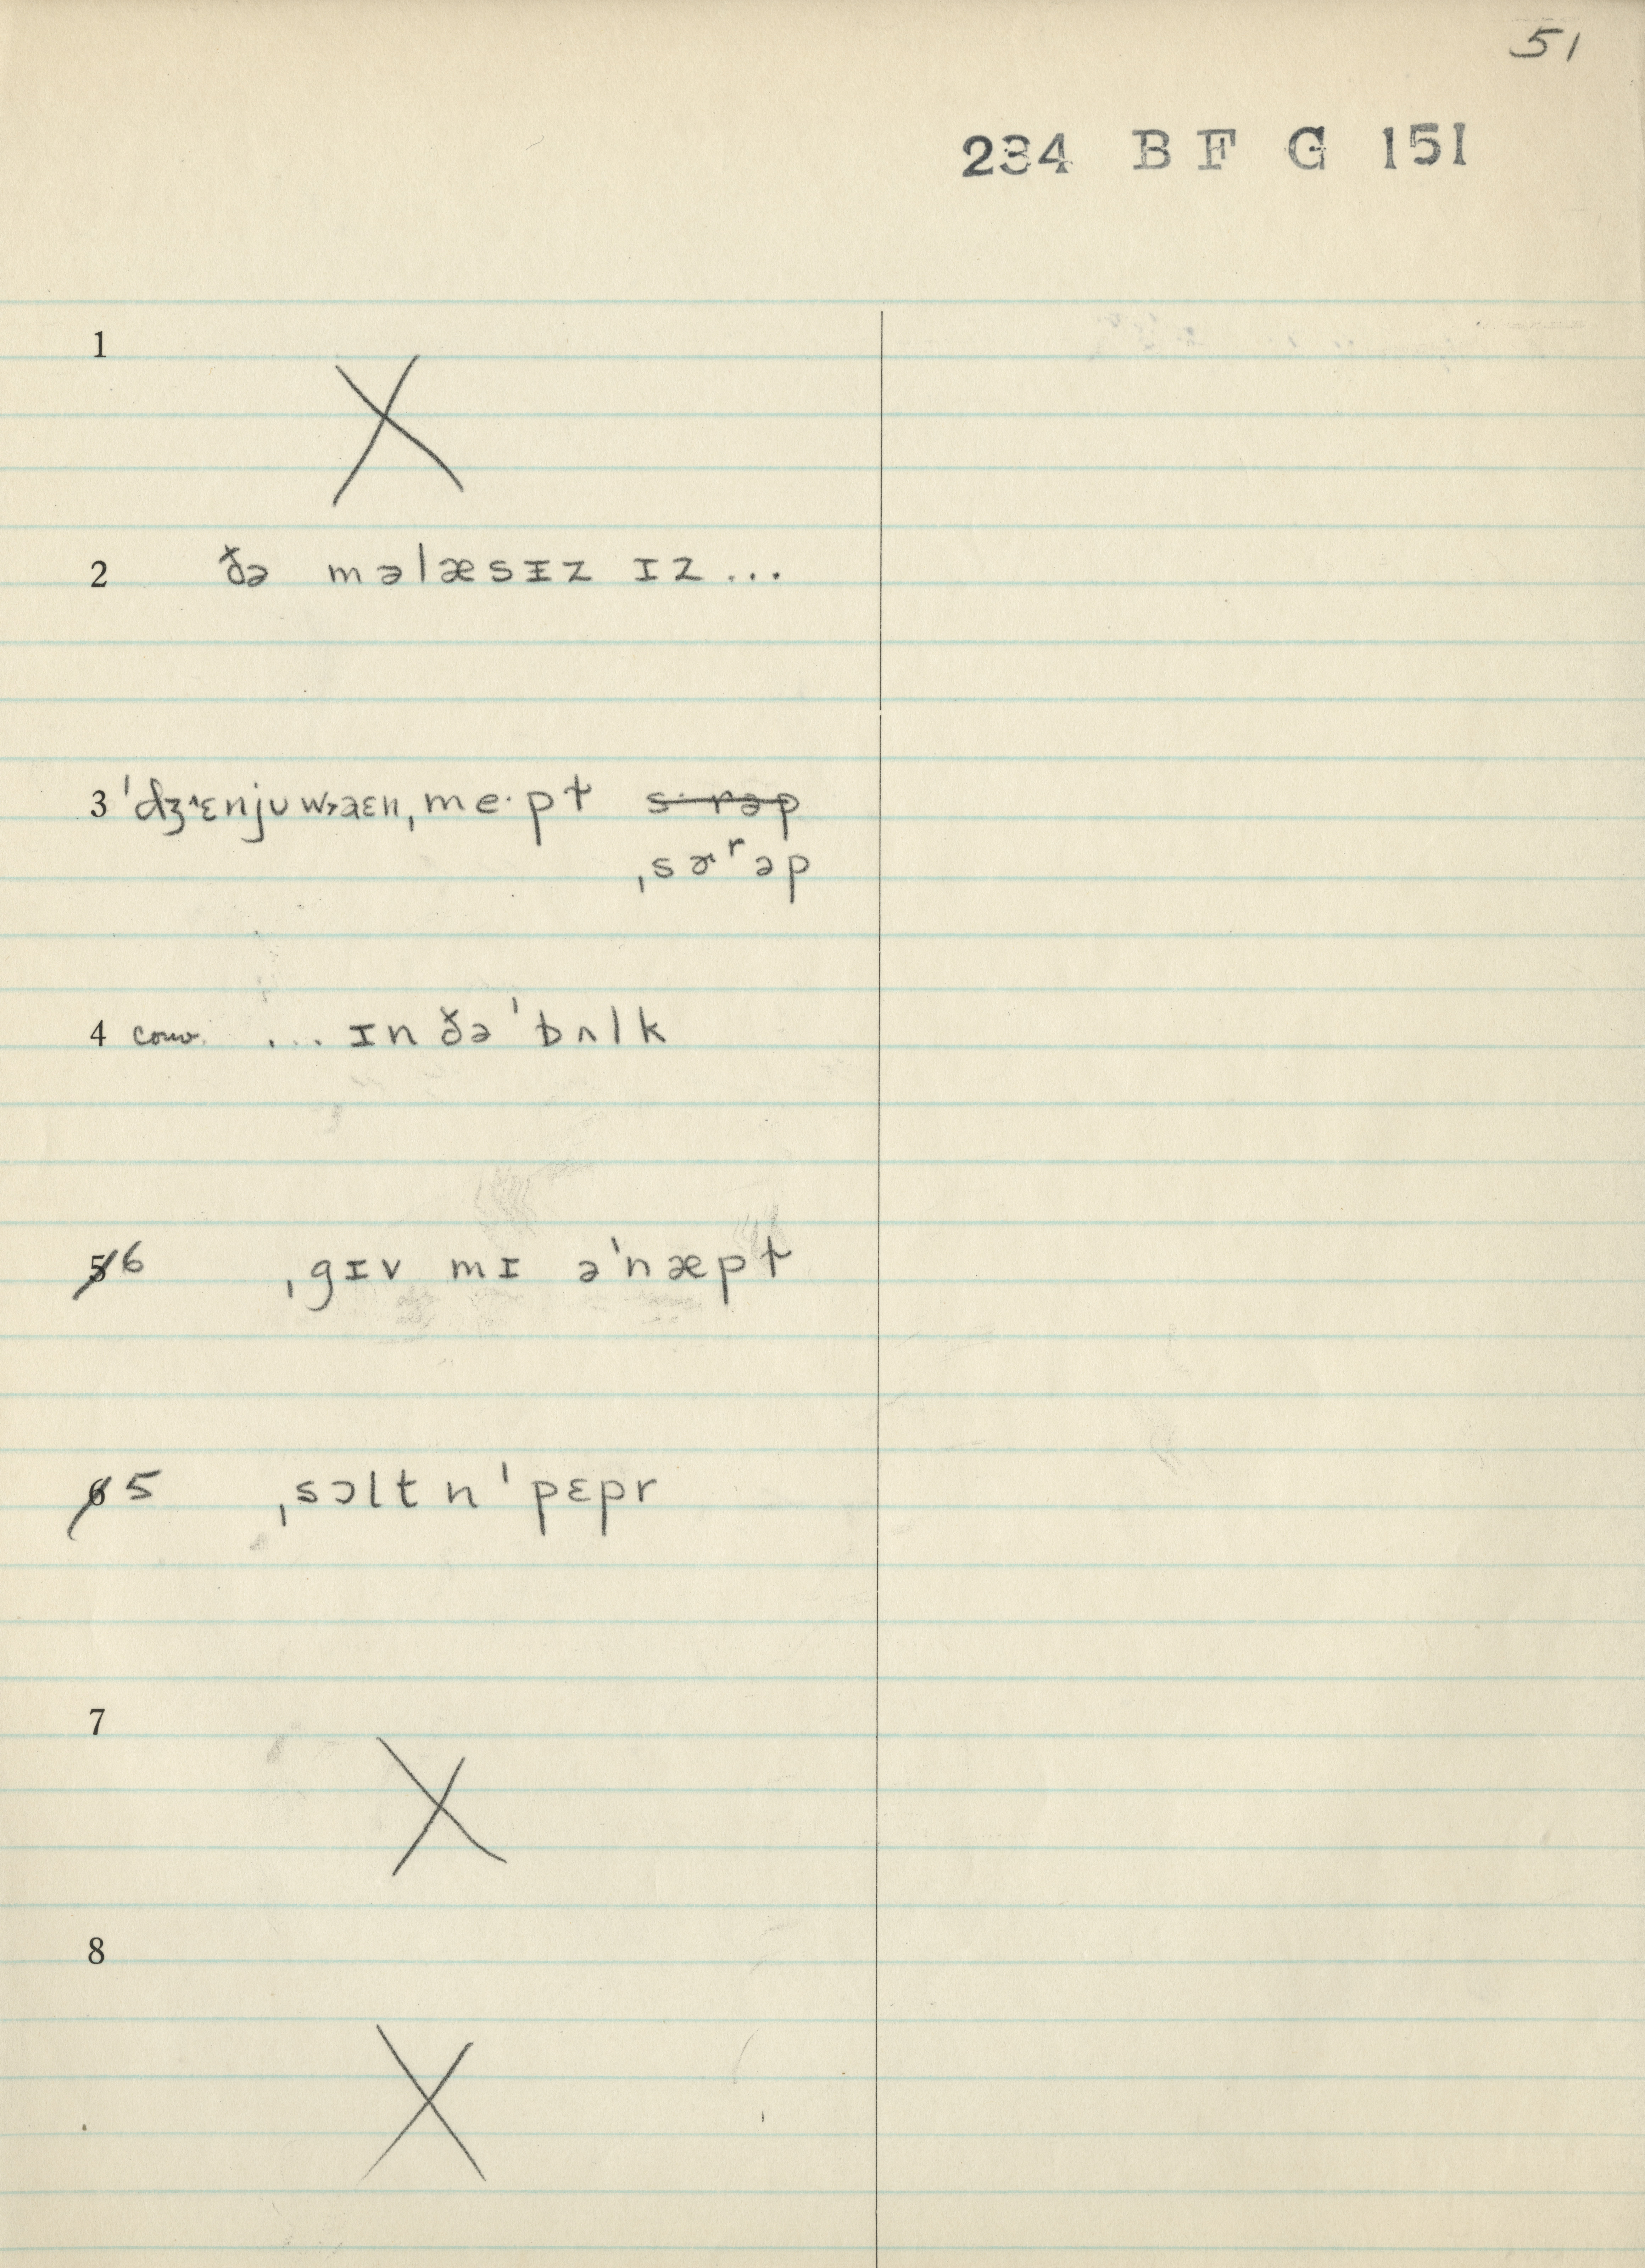 51
234 B F G 151
1
X
2 ðə məlæsɪz ɪz...
3 ˈdʒ˄ɛnjuw˃aɛn, me·pɫ s·rəp
ˌsɚʳəp
4 conv. ... ɪn ðə ˈbʌlk
5 6 ˌgɪv mɪ əˈnæpɫ
6 5 ˌsɔlt n ˈpɛpr
7
X
8
X